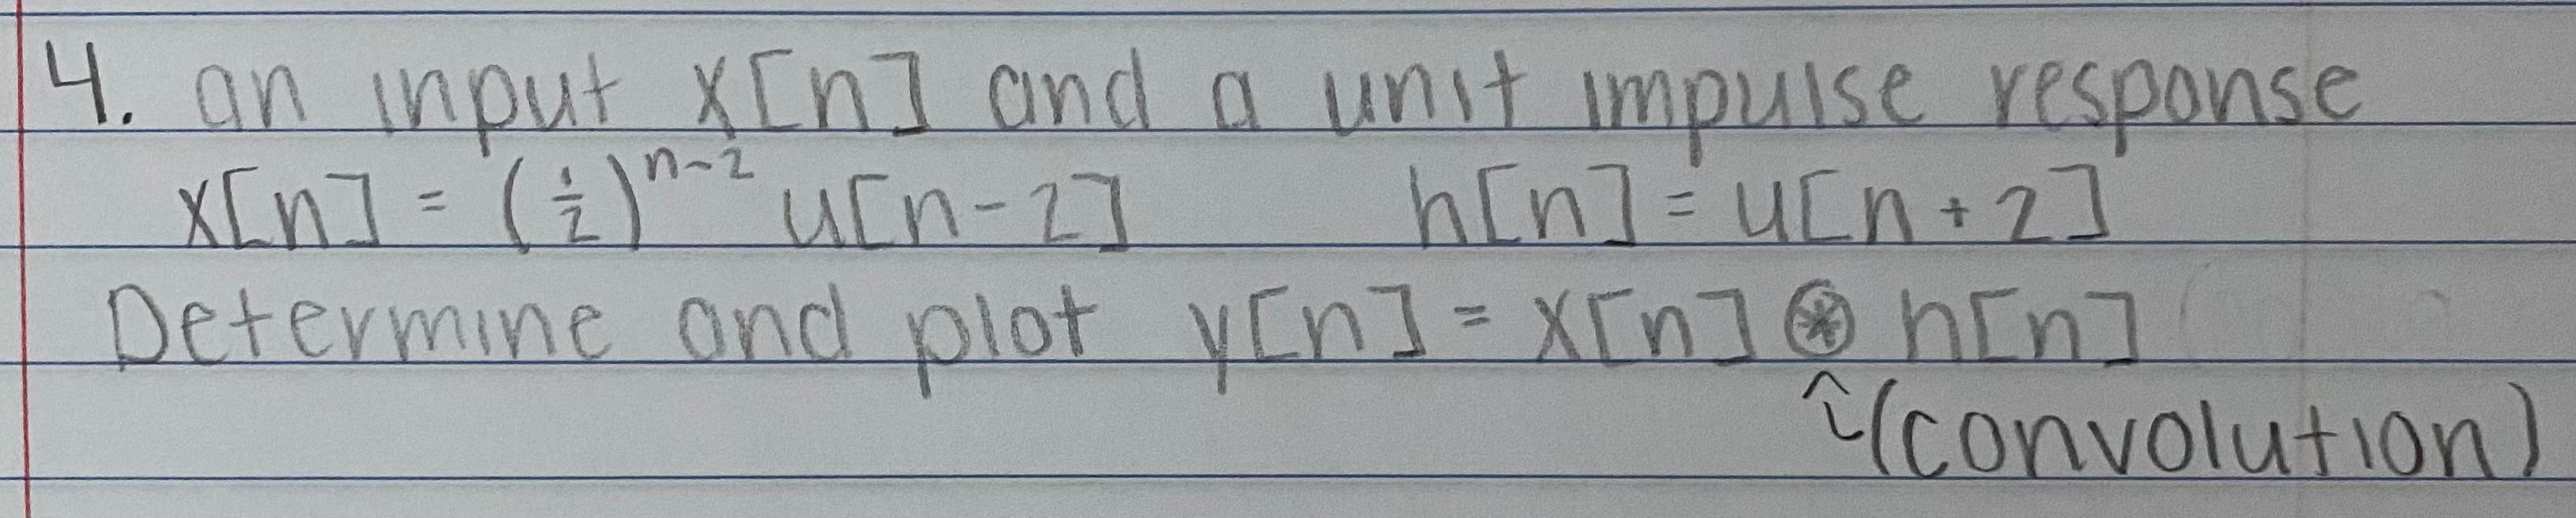 4. an input x[n] and a unit impulse response
x[n] = (1/2)^{n-2} u[n-2] h[n] = u[n+2]
Determine and plot y[n] = x[n] ⊛ h[n]
↑(convolution)